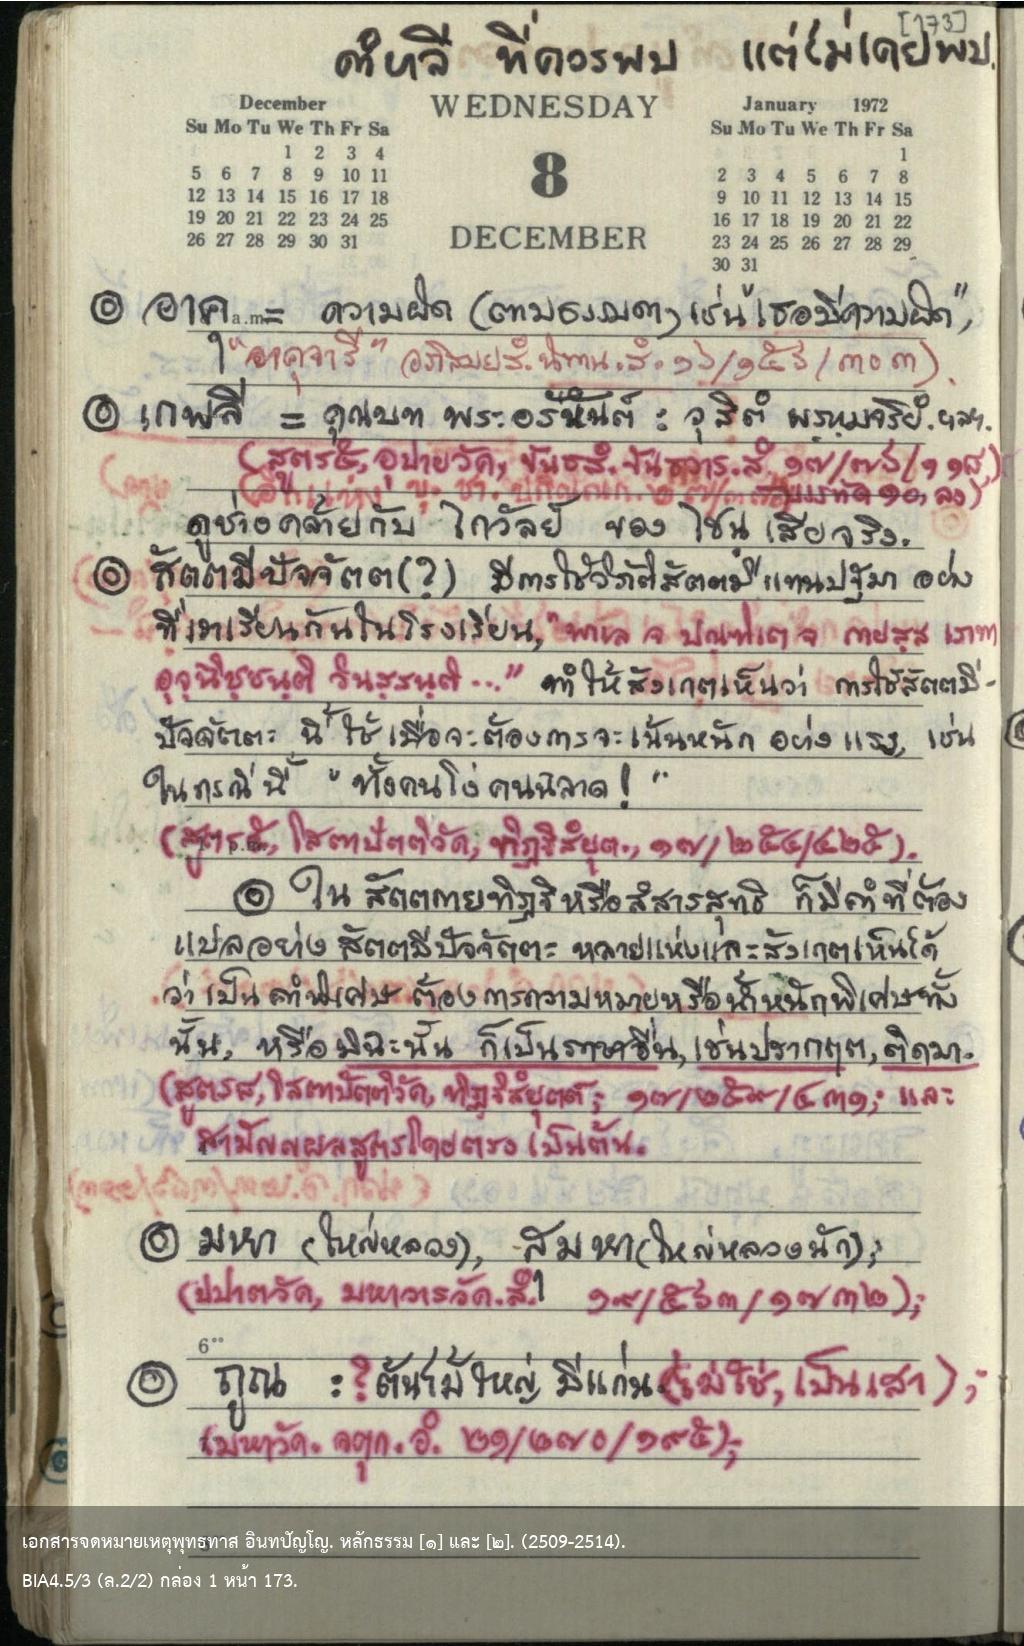 [173]
คำบาลี ที่ควรพบ แต่ไม่เคยพบ.
December
Su Mo Tu We Th Fr Sa
1 2 3 4
5 6 7 8 9 10 11
12 13 14 15 16 17 18
19 20 21 22 23 24 25
26 27 28 29 30 31
WEDNESDAY
8
DECEMBER
January 1972
Su Mo Tu We Th Fr Sa
1
2 3 4 5 6 7 8
9 10 11 12 13 14 15
16 17 18 19 20 21 22
23 24 25 26 27 28 29
30 31
๏ อาคุ a.m. = ความผิด (ตามธรรมดา, เช่น "เธอมีความผิด",
"อาคุจารี" อภิสมยสํ. นิทาน.สํ. ๑๖/๑๕๖/๓๐๓).
๏ เกพลี = คุณบท พระอรหันต์ : วุสิตํ พฺรหฺมจริยํ. ฯลฯ.
(สูตร๕, อุปายวัค, ขันธสํ. ขันธวาร.สํ. ๑๗/๗๖/๑๑๘,)
ดูช่างคล้ายกับ ไกวัลย์ ของ ไชน เสียจริง.
๏ สัตตมีปัจจัตต(?) มีการใช้วิภัติสัตตมี แทนปฐมา อย่าง
ที่เราเรียนกันในโรงเรียน, "พาเล จ ปณฺฑิเต จ กายสฺส เภทา
อุจฺฉิชฺชนฺติ วินสฺสนฺติ ..." ทำให้สังเกตเห็นว่า การใช้สัตตมี-
ปัจจัตตะ นี้ ใช้ เมื่อจะต้องการจะเน้นหนัก อย่างแรง, เช่น
ในกรณีนี้ "ทั้งคนโง่ คนฉลาด!"
(สูตร๕, โสตาปัตติวัค, ทิฏฐิสํยุต., ๑๗/๒๕๔/๔๒๕).
๏ ใน สัตตกายทิฏฐิหรือสํสารสุทธิ ก็มีคำที่ต้อง
แปลอย่าง สัตตมีปัจจัตตะ หลายแห่งและสังเกตเห็นได้
ว่า เป็น คำพิเศษ ต้องการความหมายหรือน้ำหนักพิเศษทั้ง
นั้น, หรือมิฉะนั้น ก็เป็นภาษาอื่น, เช่นปรากฤต, ติดมา.
(สูตร๘, โสตาปัตติวัค, ทิฏฐิสํยุตต์; ๑๗/๒๕๙/๔๓๑; และ
สามัญญผลสูตรโดยตรง เป็นต้น.
๏ มหา (ใหญ่หลวง), สุมหา (ใหญ่หลวงนัก);
(ปปาตวัค, มหาวารวัค.สํ. ๑๙/๕๖๓/๑๗๓๒);
6
๏ ถูณ :? ต้นไม้ใหญ่ มีแก่น (ไม่ใช่, เป็นเสา);
(มหาวัค. จตุก. อํ. ๒๑/๒๗๐/๑๙๕);
เอกสารจดหมายเหตุพุทธทาส อินทปัญโญ. หลักธรรม [๑] และ [๒]. (2509-2514).
BIA4.5/3 (ล.2/2) กล่อง 1 หน้า 173.